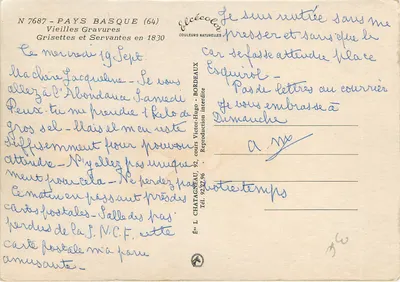 N 7687 - PAYS BASQUE (64)
Vieilles Gravures
Grisettes et Servantes en 1830
Elcécolor
COULEURS NATURELLES
Ce mercredi 19 Sept
Ma chère Jacqueline - Si vous
allez à l'Abondance Samedi
Peux tu me prendre 1 kilo de
gros sel - Mais il m'en reste
suffisemment pour pouvoir
attendre - N'y allez pas unique
ment pour cela - Ne perdez pas votre temps
Ce matin en passant près des
cartes postales - Salle des pas
perdus de la S.N.C.F. cette
carte postale m'a paru
amusante -
Je suis rentrée sans me
presser et sans que le
car se fasse attendre place
Esquirol -
Pas de lettres au courrier
Je vous embrasse à
Dimanche
Éts L. CHATAGNEAU, 92, cours Victor-Hugo - BORDEAUX
Tél. 92.72.96 Reproduction interdite